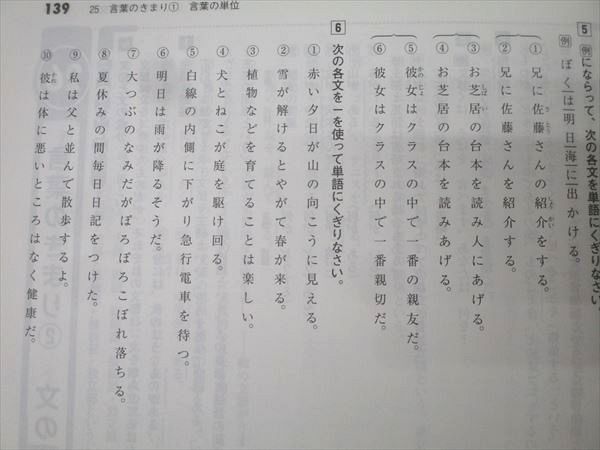 139 25 言葉のきまり① 言葉の単位
5 例にならって、次の各文を単語にくぎりなさい。
例 ぼく|は|明日|海|に|出かける。
① 兄に佐藤さんの紹介をする。
② 兄に佐藤さんを紹介する。
③ お芝居の台本を読み人にあげる。
④ お芝居の台本を読みあげる。
⑤ 彼女はクラスの中で一番の親友だ。
⑥ 彼女はクラスの中で一番親切だ。
6 次の各文を|を使って単語にくぎりなさい。
① 赤い夕日が山の向こうに見える。
② 雪が解けるとやがて春が来る。
③ 植物などを育てることは楽しい。
④ 犬とねこが庭を駆け回る。
⑤ 白線の内側に下がり急行電車を待つ。
⑥ 明日は雨が降るそうだ。
⑦ 大つぶのなみだがぽろぽろこぼれ落ちる。
⑧ 夏休みの間毎日日記をつけた。
⑨ 私は父と並んで散歩するよ。
⑩ 彼は体に悪いところはなく健康だ。